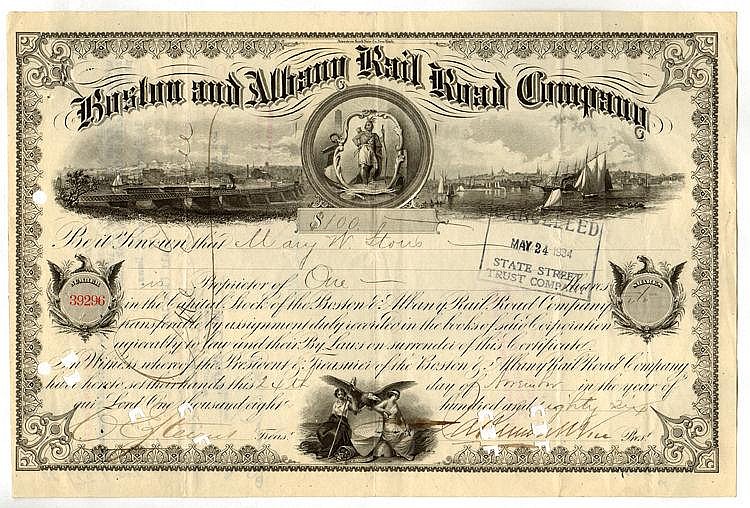 American Bank Note Co. New York
Boston and Albany Rail Road Company
$100
Be it Known that Mary W.
CANCELLED
MAY 24 1934
STATE STREET
TRUST COMPANY
is Proprietor of One Shares
NUMBER
39296
SHARES
in the Capital Stock of the Boston & Albany Rail Road Company
transferable by assignment duly recorded in the books of said Corporation
agreeably to law and their By Laws on surrender of this Certificate.
In Witness whereof the President & Treasurer of the Boston & Albany Rail Road Company
have hereto set their hands this 24th day of November in the year of
our Lord One thousand eight hundred and eighty six
Treas. Prest.